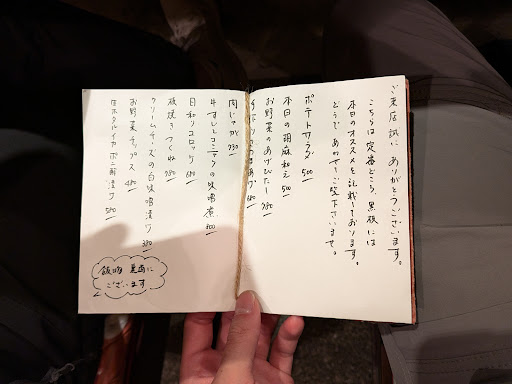 ご来店 誠に ありがとうございます。
こちらは定番どころ、黒板には
本日のオススメを記載しております。
どうぞ あわせてご覧下さいませ。
ポテトサラダ 500
本日の胡麻和え 500
お野菜のあげびたし 780
肉じゃが 730
牛すじとコニャクの味噌煮 800
日和りコロッケ 680
板焼きつくね 780
クリームチーズの白味噌漬け 380
お野菜チップス 480
ホタルイカ ポン酢漬け 580
飯物 裏面に
ございます